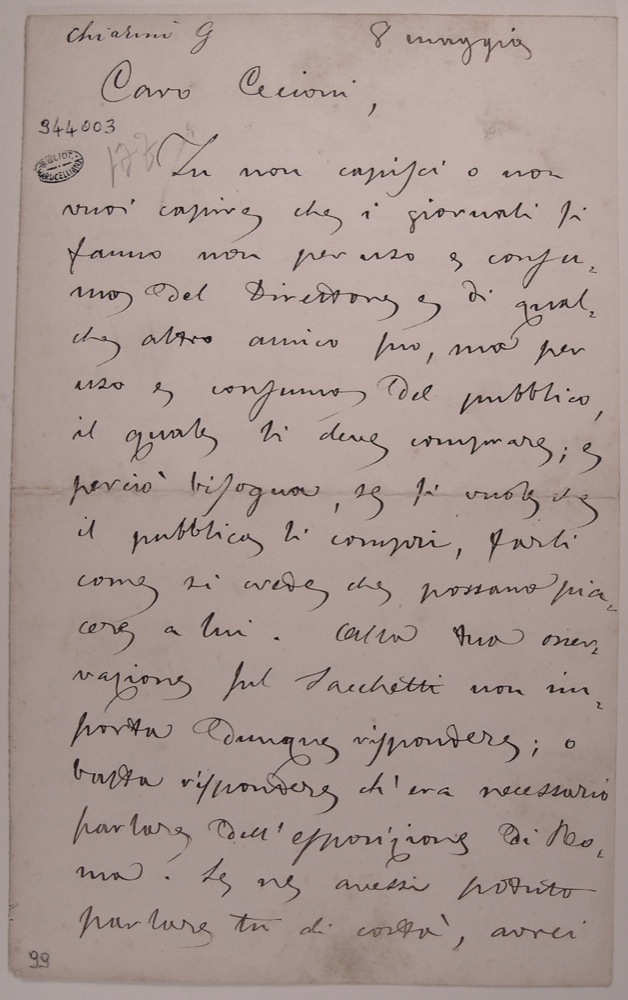 Chiarini G
8 maggio
Caro Cecioni,
944003
177
BIBLIOT. MARUCELLIANA
Tu non capisci o non
vuoi capire che i giornali si
fanno non per uso e consu-
mo del Direttore e di qual-
che altro amico suo, ma per
uso e consumo del pubblico,
il quale li deve comprare; e
perciò bisogna, se si vuole che
il pubblico li compri, farli
come si crede che possano pia-
cere a lui. Alla tua osser-
vazione sul Sacchetti non im-
porta dunque rispondere; o
basta rispondere ch'era necessario
parlare dell'esposizione di Ro-
ma. Se ne avessi potuto
parlare tu di costà, avrei
99